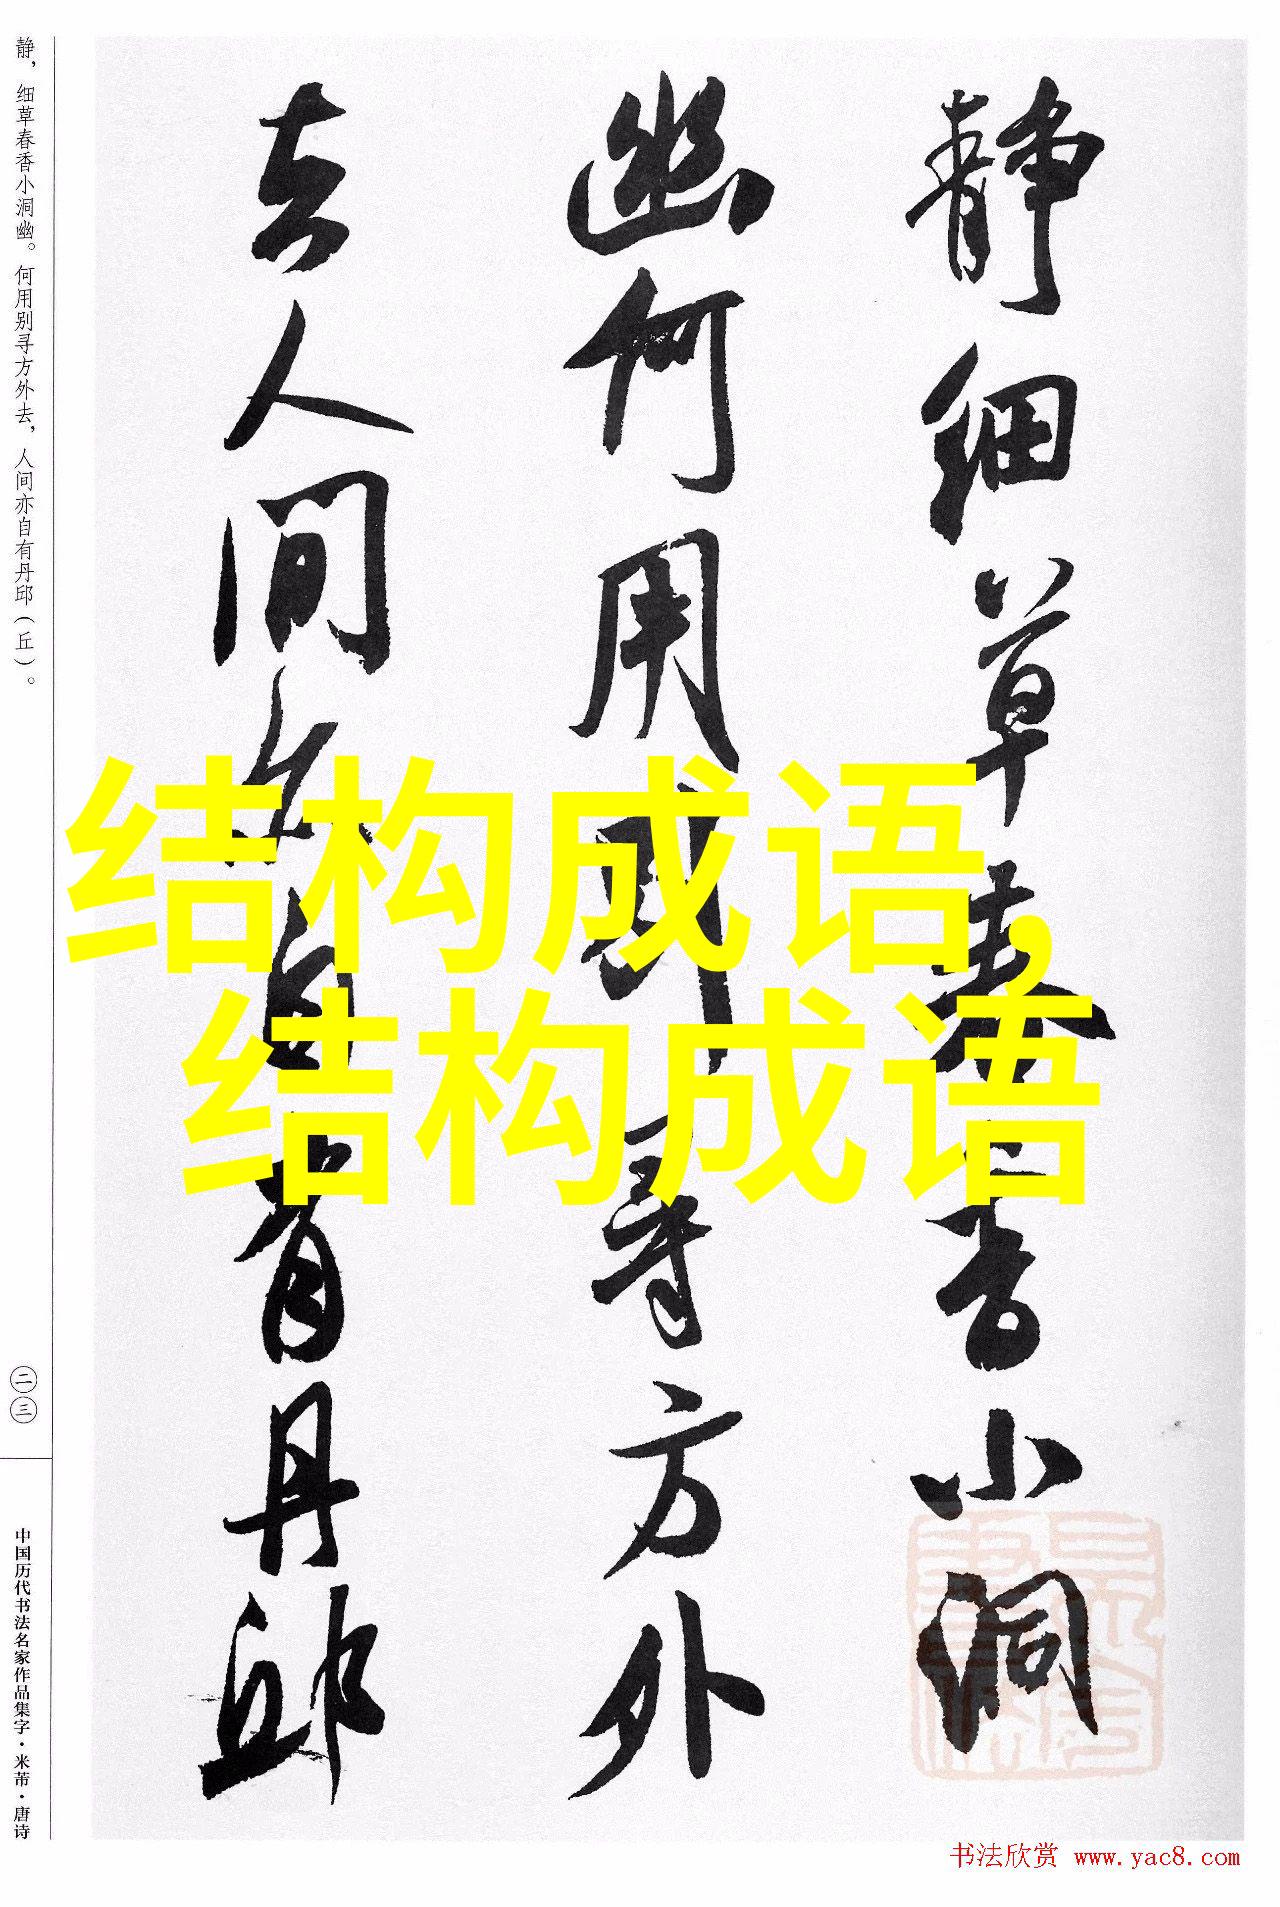 静细草春香小洞
幽何用别寻方外
去人间亦自有丹邱
结构成语,
结构成语
静，细草春香小洞幽。何用别寻方外去，人间亦自有丹邱（丘）。
二三
中国历代书法名家作品集字·米芾·唐诗
书法欣赏 www.yac8.com